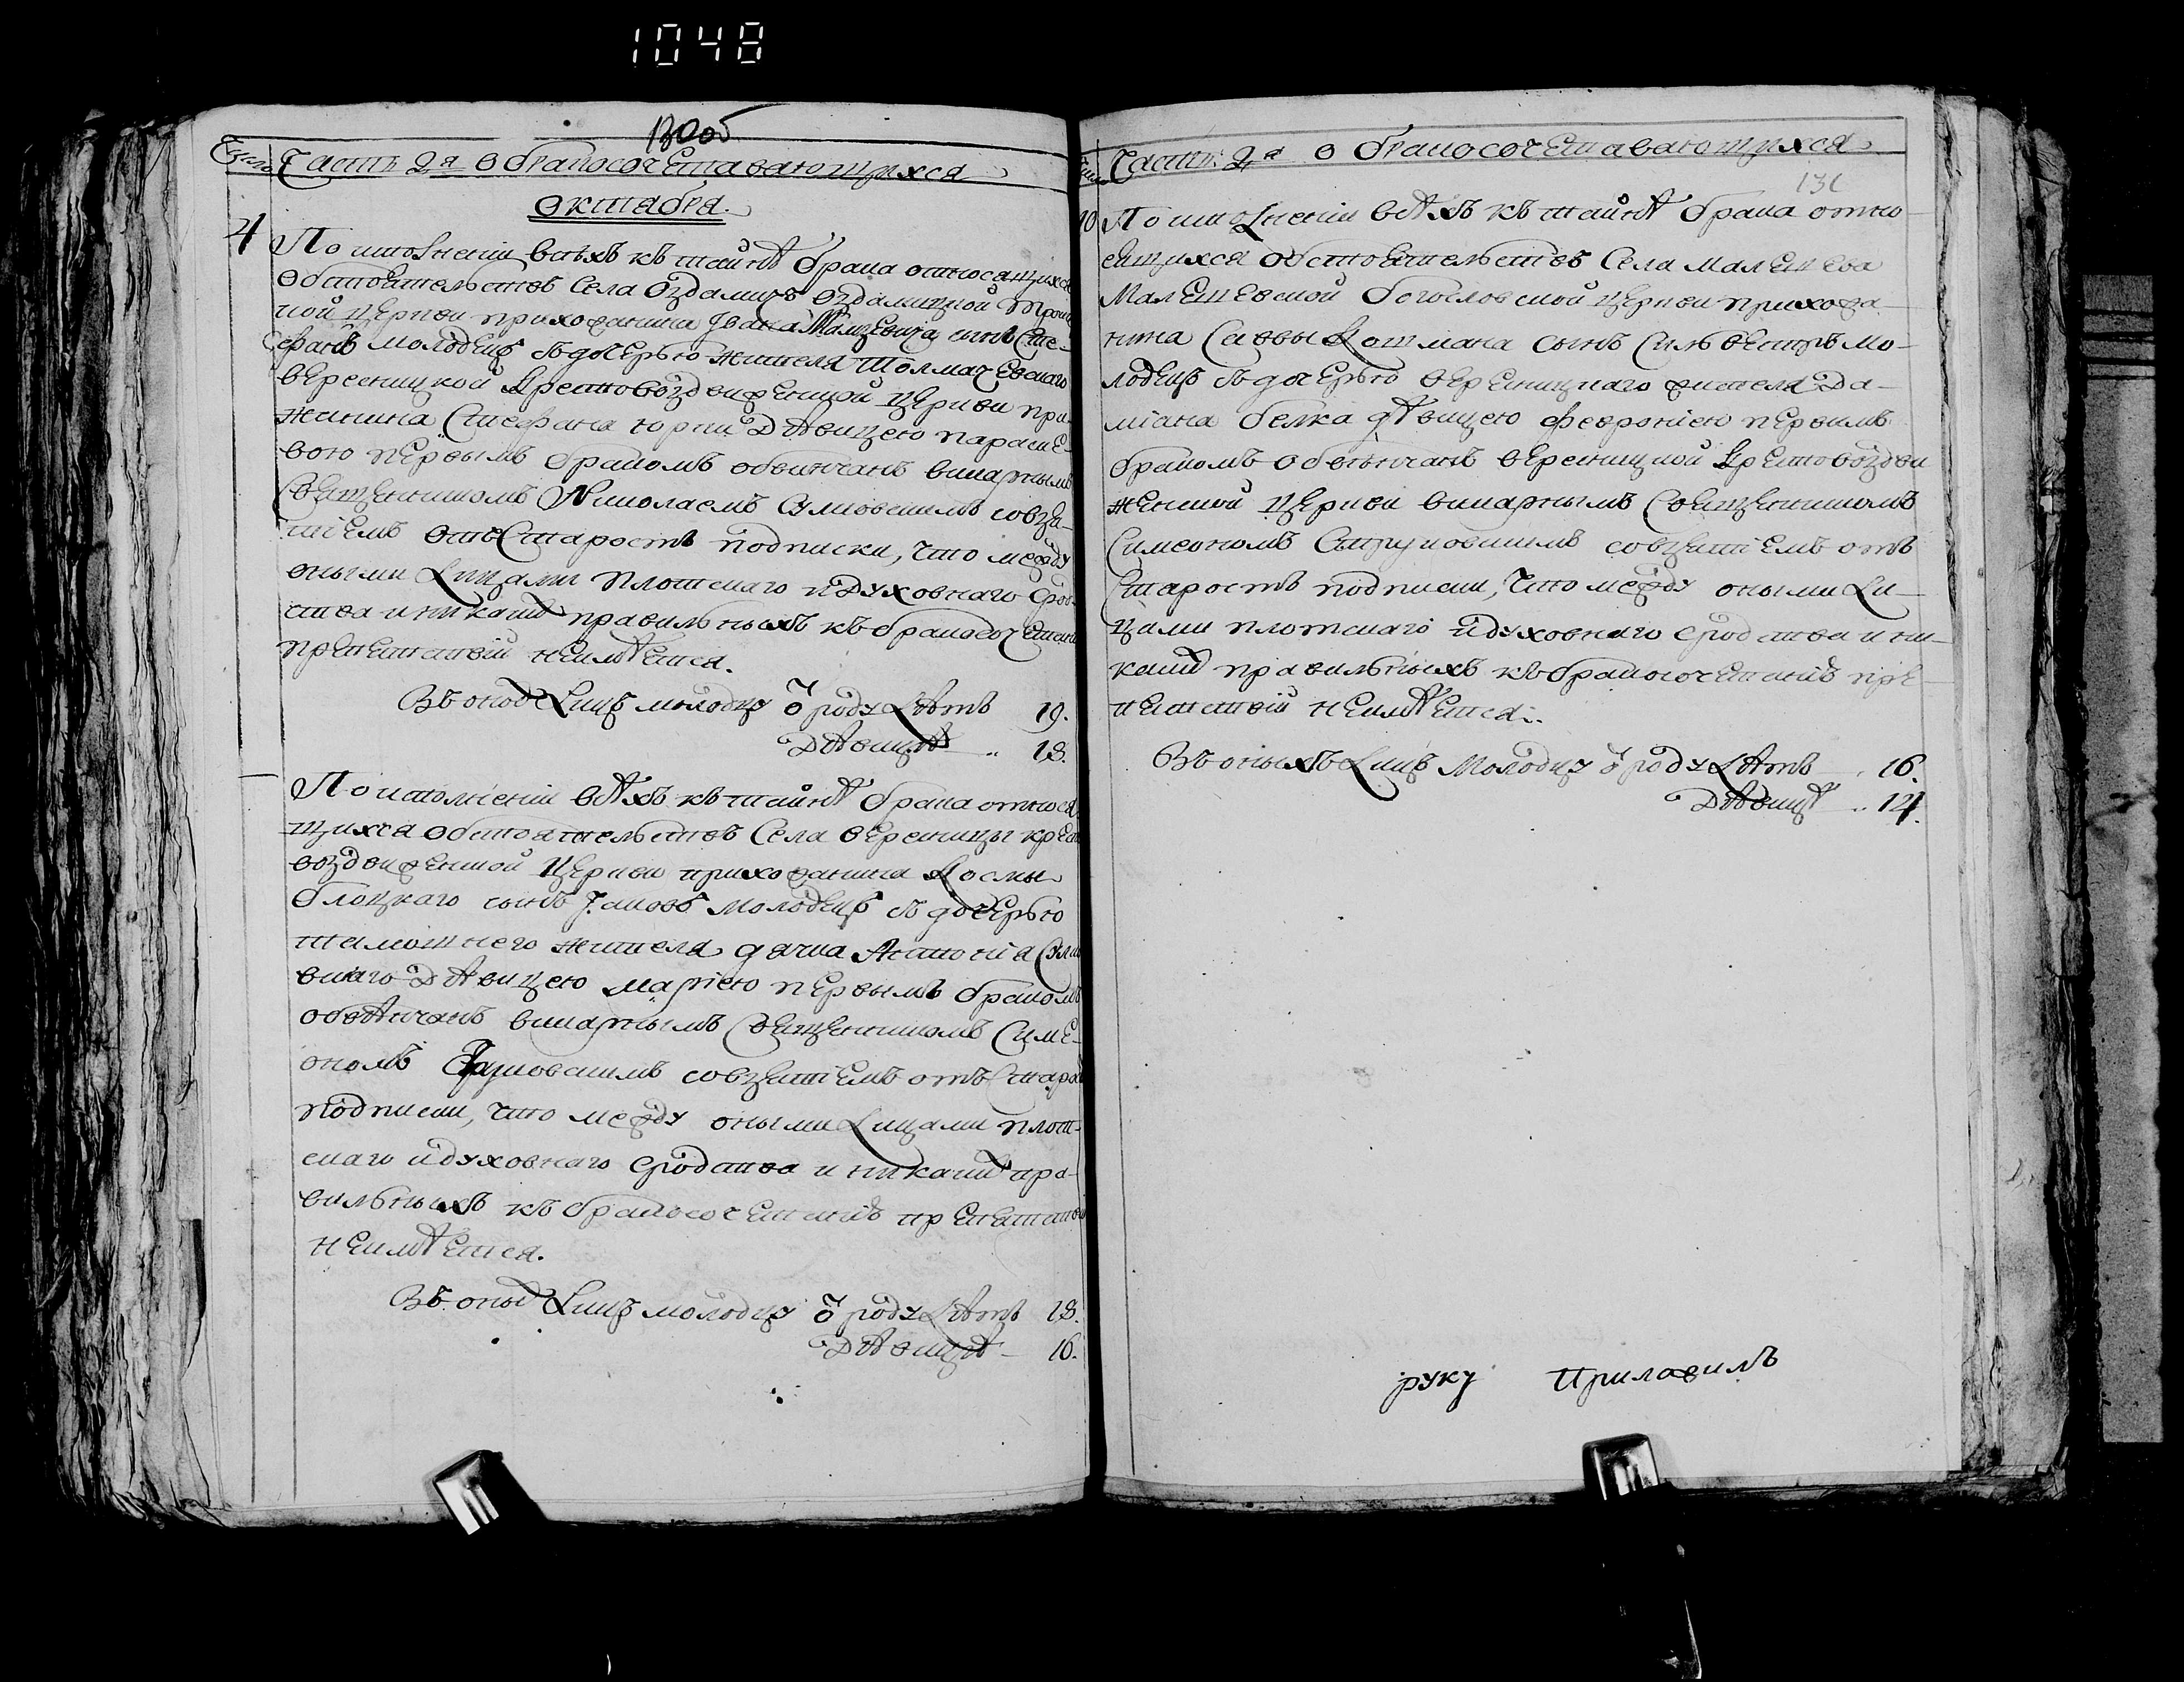 1048
130об
Число
Часть 2я О бракосочетавающихся
Октября.
4
По исполненіи всѣхъ къ тайнѣ брака относящихся
Обстоятельствъ Села Оздамичъ Оздамицкой Трои
цкой Церкви прихожанина Ивана сынъ Сте-
фанъ молодецъ съ дочерью жителя Толмачевскаго
Вересницкой Крестовоздвиженской Церкви при
жанина Стефана Дѣвицею Параске-
вою первымъ бракомъ обвѣнчанъ викарнымъ
Священникомъ Николаемъ совзя-
тіемъ отъ Старостъ подписки, что между
оными Лицами плотскаго и духовнаго срод
ства и никаких правильныхъ къ бракосочетани
препятствій неимѣется.
Въ оных Лицъ молодцу ѿ роду Лѣтъ 19.
Дѣвицѣ .. 18.
По исполненіи всѣхъ къ тайнѣ брака относя
щихся обстоятельствъ Села Вересницы Крест
воздвиженской Церкви прихожанина Космы
Блоцкаго сынъ Іаковъ молодецъ съ дочерью
тамошнего жителя дячка Антонія Сули
вскаго Дѣвицею Маріею первымъ бракомъ
обвѣнчанъ викарнымъ Священникомъ Симе-
ономъ совзятіемъ отъ Старос
подписки, что между оными Лицами плот-
скаго и духовнаго сродства и никаких пра-
вильныхъ къ бракосочетанію препятстві
неимѣется.
Въ оных Лицъ молодцу ѿ роду Лѣтъ 18.
Дѣвицѣ 16.
Часть 2я О бракосочетавающихся
131
10
По исполненіи всѣхъ къ тайнѣ брака отно-
сящихся обстоятельствъ Села Малешева
Малешевской Богословской Церкви прихожа-
нина Саввы Кошмана сынъ Сильвестръ мо-
лодецъ съ дочерью Вересницкаго жителя Да-
міана Белка дѣвицею Февроніею первымъ
бракомъ обвѣнчанъ Вересницкой Крестовоздви
женской Церкви викарнымъ Священникомъ
Симеономъ совзятіемъ отъ
Старостъ подписки, что между оными Ли-
цами плотскаго и духовнаго сродства и ни-
каких правильныхъ къ бракосочетанію пре-
пятствій неимѣется.
Въ оныхъ Лицъ молодцу ѿ роду Лѣтъ 16.
Дѣвицѣ .. 14.
руку приложилъ